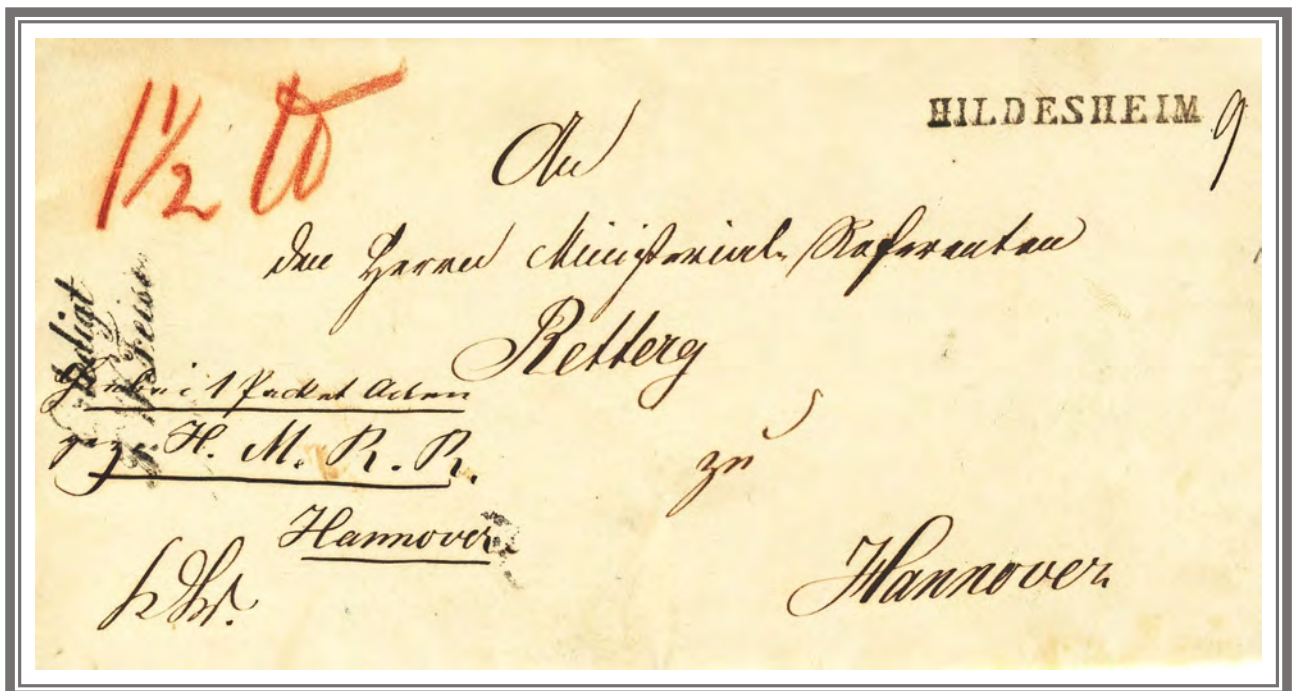 1 1/2 ℔
HILDESHEIM 9
An
den Herrn Ministerial-Referenten
Retterg
zu
Hannover
Hierbei 1 Packet Acten
gez. H. M. R. R.
Hannover